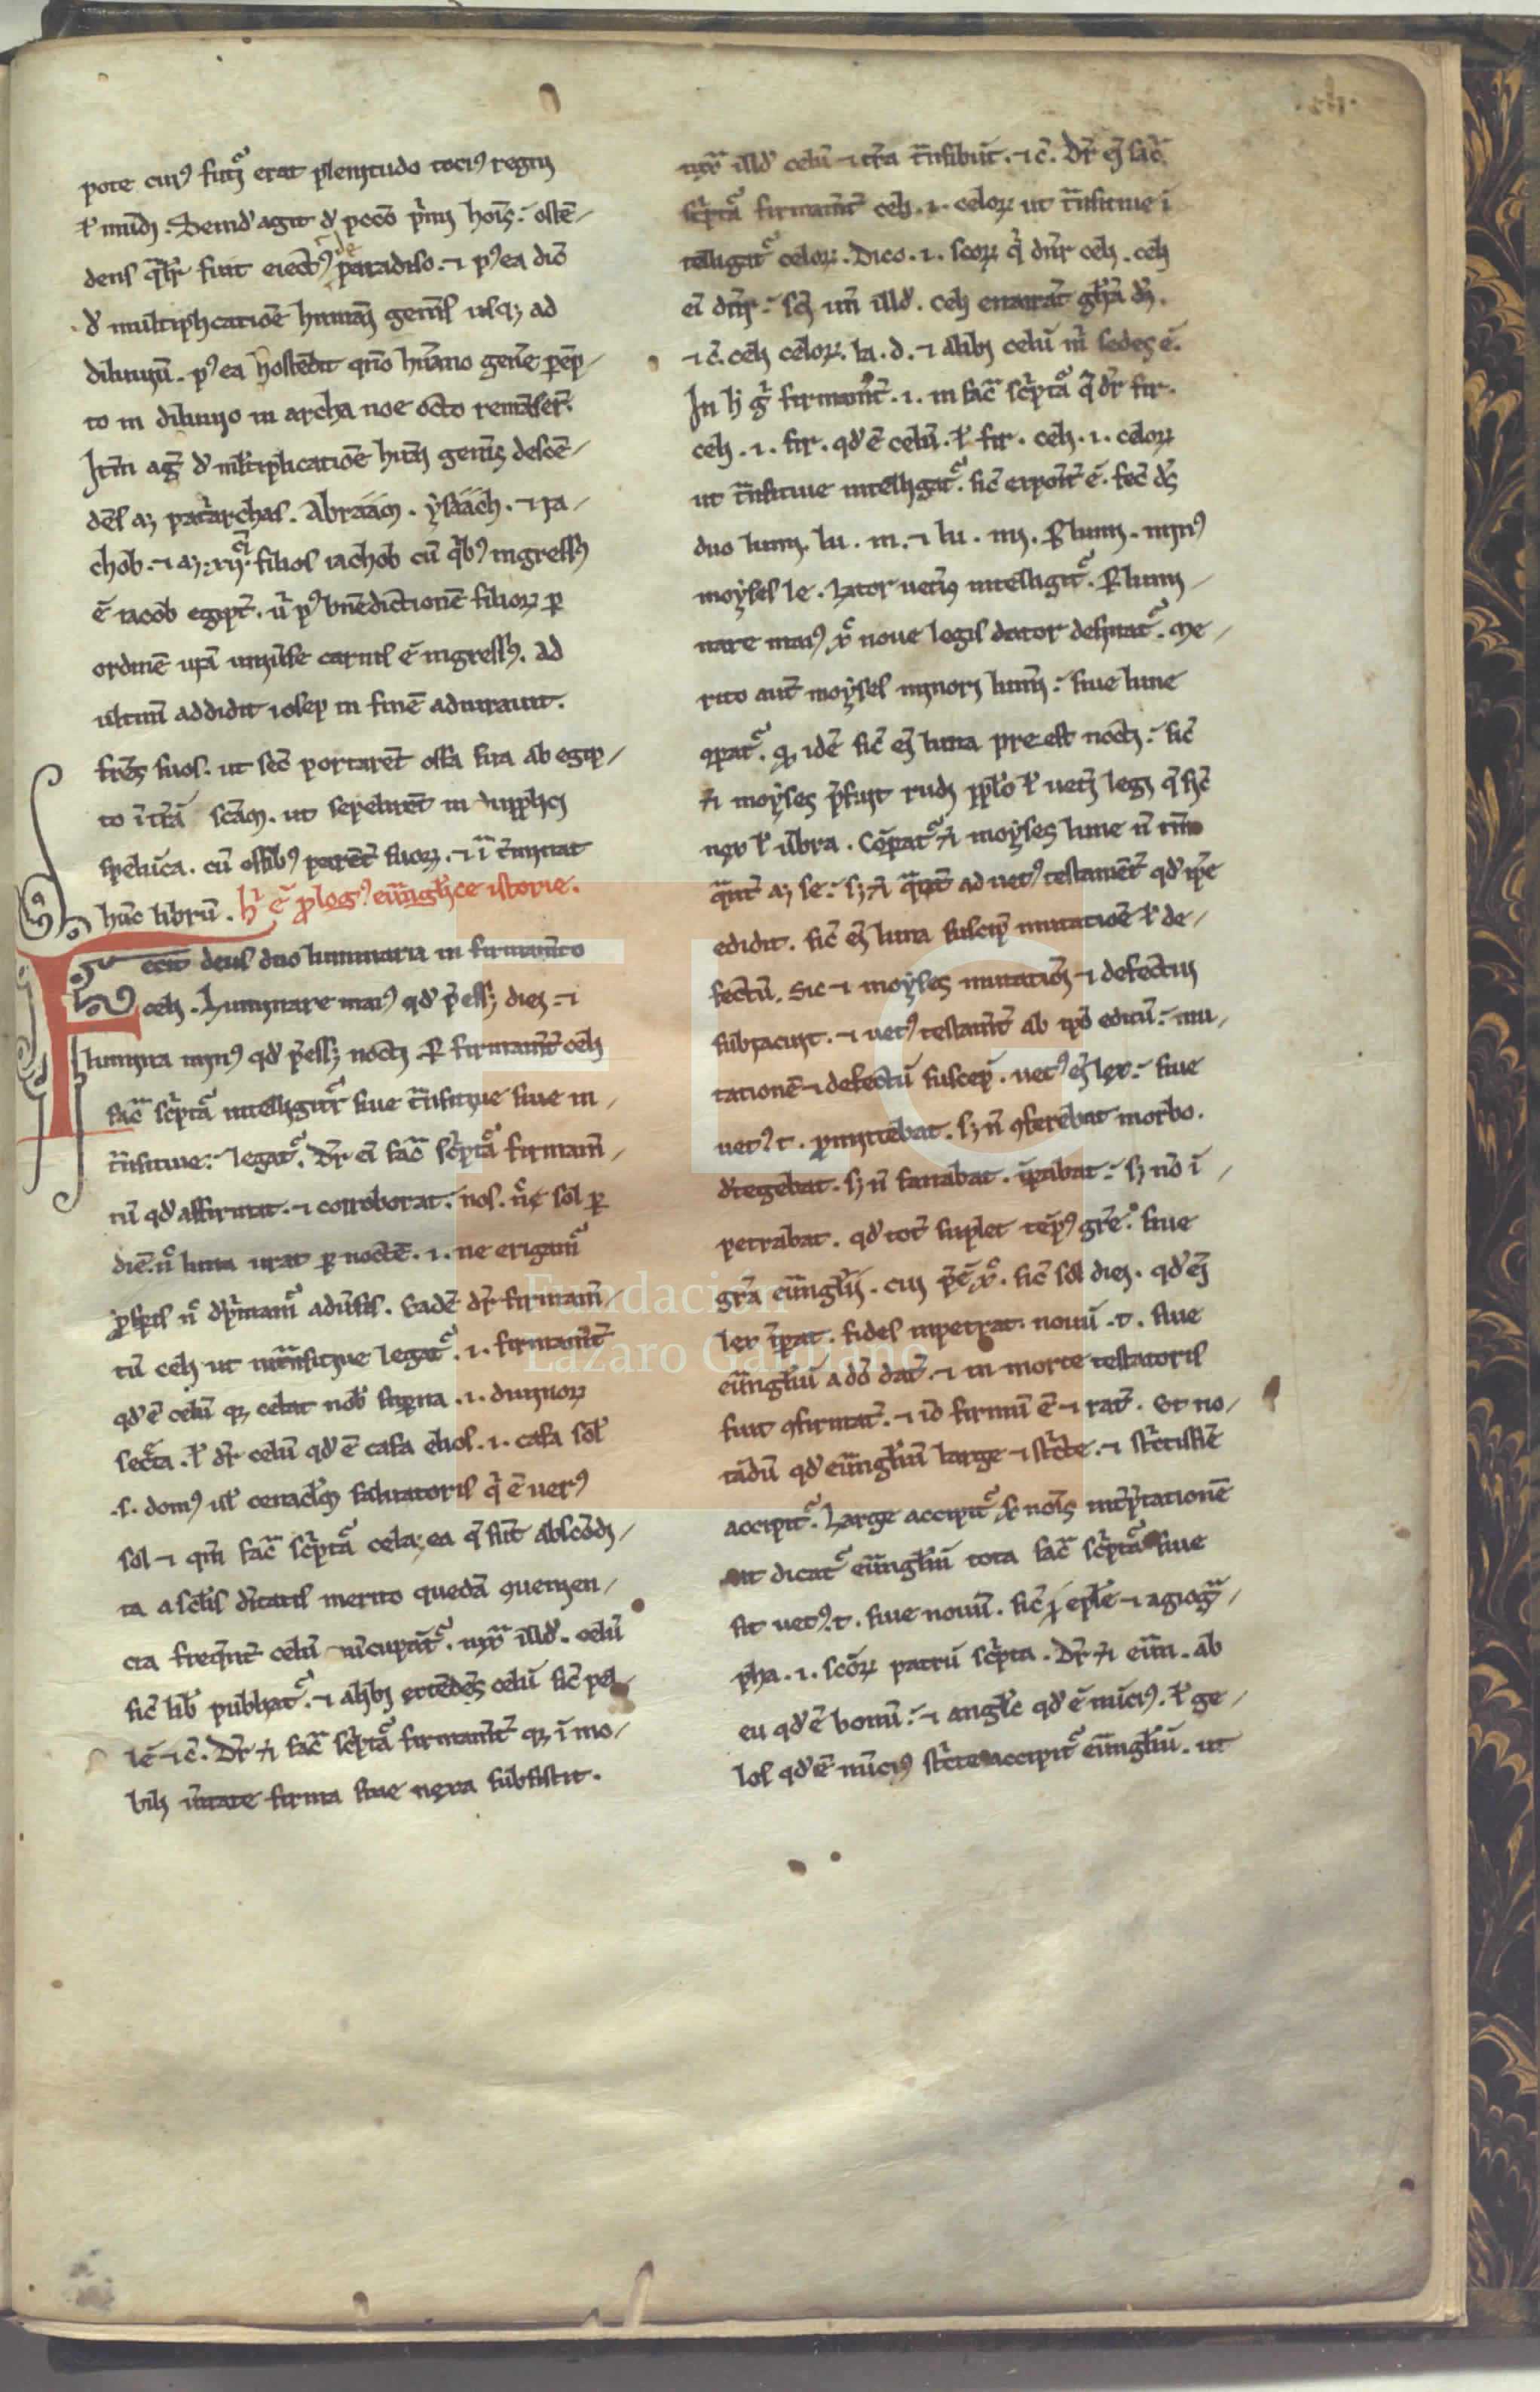 pote cuiꝰ fut᷑ erat plenitudo tociꝰ regni
ł mūdi. Deinď agit ď pccō p̄mi hoīs. ostē/
dens qͣlr̄ fuit eiectꝰ de paradiso. ⁊ pꝰea dic̄
ď multiplicatiōe humani gen̄is usqꝫ ad
diluuiū. pꝰea hostēdit qn̄o hūano gen̄e pēp/
to in diluuio in archa noe octo remāser̄.
Itm̄ aḡ ď mltiplicatiōe hūi gen̄is descē/
dēs aꝫ patriarchas. Abraam. ysaach. ⁊ ia/
chob. ⁊ aꝫ .xii. filios iachob cū qͥbꝰ ingressꝰ
ē iacob egipt̄. ꝰ pꝰ bn̄edictionē filioꝝ ꝑ
ordinē uiā uniūse carnis ē ingressꝰ. ad
ultimū addidit iosep in finē adiurauit.
fr̄es suos. ut sec̄ portarēt ossa sua ab egip/
to ī tr̄ā scām. ut sepelirēt in duplici
spelūca. cū ossibꝰ parēt̄ suoꝝ. ⁊ ī t̄minat
hūc librū. hͥ ē ꝓlogꝰ euūgl̄ice istorie.
Fecit deus duo luminaria in firmam̄to
celi. Luminare maiꝰ qď p̄essꝫ diei. ⁊
lumina minꝰ qď p̄essꝫ nocti. ꝑ firmam̄t̄ celi
sac̄ sc̄ptͣ intelligit᷑ siue t̄nsitiue siue in/
t̄nsitiue. legat᷑. Dr̄ ei sac̄ sc̄ptͣ firmam̄/
tū qď affirmat. ⁊ corroborat. nos. n̄e sol ꝑ
diē. nͦ luna urat ꝑ noctē. .i. ne erigam᷑
ꝓsp̄is nͦ dep̄mam᷑ adūsis. Eadē dr̄ firmam̄/
tū celi ut int̄nsitiue legat᷑. .i. firmam̄t̄
qď ē celū qꝫ celat nob̄ suꝑna .i. diuinoꝝ
sec̄ta. ł dr̄ celū qď ē casa elios. .i. casa sol̄
.s. domꝰ ul̄ cenacl̄m saluatoris qͥ ē uerꝰ
sol ⁊ qm̄ sac̄ sc̄ptͣ celat ea q̄ sūt abscōdi/
ta a sc̄lis d̄itatis merito quedā ꝯuenien/
cia freqn̄t celū nūcupat᷑. iuxͣ illď. celū
sic̄ lib̄ publicat᷑. ⁊ alibi extēdēs celū sic̄ pel
lē ⁊ c̄. Dr̄ ⁊ sac̄ sc̄ptͣ firmam̄t̄ qꝫ ī mo/
bili ūitate firma siue nexa subsistit.
iuxͣ illď celū ⁊ tr̄a t̄nsibūt. ⁊ c̄. Dr̄ eī sac̄
sc̄ptͣ firmam̄t celi .i. celoꝝ ut t̄nsitiue ī
telligat᷑ celoꝝ. Dico .i. scoꝝ qͥ dn̄r celi. celi
eī dn̄r. sc̄ un̄ illď. celi enarrāt gl̄iā dī.
⁊ c̄. celi celoꝝ. la. d. ⁊ alibi celū m̄ sedes ē.
In hͥ gͥ firmam̄t̄ .i. in sac̄ sc̄ptͣ q̄ dr̄ fir.
celi .i. fir. qď ē celū. ł fir. celi .i. celoꝝ
ut t̄nsitiue intelligat᷑. sic̄ expoīt̄ ē. fec̄ dꝰ
duo lumi. lu. m. ⁊ lu. mi. ꝑ lumi. minꝰ
moyses le. lator uet̄is intelligit᷑. ꝑ lumi/
nare maiꝰ xͦ noue legis dator desinat᷑. me/
rito aut̄ moyses minori lumī. siue lune
ꝯpat᷑. qꝫ idē sic̄ eī luna preest nocti. sic̄
⁊ moyses p̄fuit rudi pplo ł ueti legi q̄ sic̄
nex ł ūbra. Cōpat᷑ ⁊ moyses lune n̄ tm̄
qͣnt̄ aꝫ se. sꝫ ⁊ qͣnt̄ ad uetꝰ testamēt̄ qď ip̄e
edidit. sic̄ eī luna suscip̄ mutatiōe ł de/
fectū. Sic ⁊ moyses mutatiōi ⁊ defectui
subiacuit. ⁊ uetꝰ testam̄t̄ ab ipō editū. mu/
tationē ⁊ defectū suscep̄. uetꝰ eī lex. siue
uetꝰ. t. ꝓmittebat. sꝫ n̄ ꝯferebat morbo.
d̄tegebat. sꝫ n̄ sanabat. īpabat. sꝫ nō ī/
petrabat. qď tot̄ suplet tēpꝰ gr̄e. siue
gr̄a euūgl̄ii. cui p̄ē xͦ. sic̄ sol diei. qď eī
lex īpat. fides inpetrat. nouū .t. siue
euūgl̄iū a dō dat̄. ⁊ in morte testatoris
fuit ꝯfirmat̄. ⁊ iō firmū ē ⁊ rat̄. Et no/
tādū qď euūgl̄iū large ⁊ st̄cte. ⁊ st̄ctissīe
accipit᷑. Large accipit᷑ ẜ nois int̄p̄tationē
ut dicat᷑ euūgl̄iū tota sac̄ sc̄ptͣ siue
sit uetꝰ. t. siue nouū. sic̄ ī epl̄e ⁊ agiogͣ/
pha .i. scōꝝ patrū sc̄pta. Dr̄ ⁊ euū. ab
eu qď ē bonū. ⁊ angl̄c qď ē nūciꝰ. ł ge/
los qď ē nūciꝰ st̄cte accipit᷑ euūgl̄iū. ut